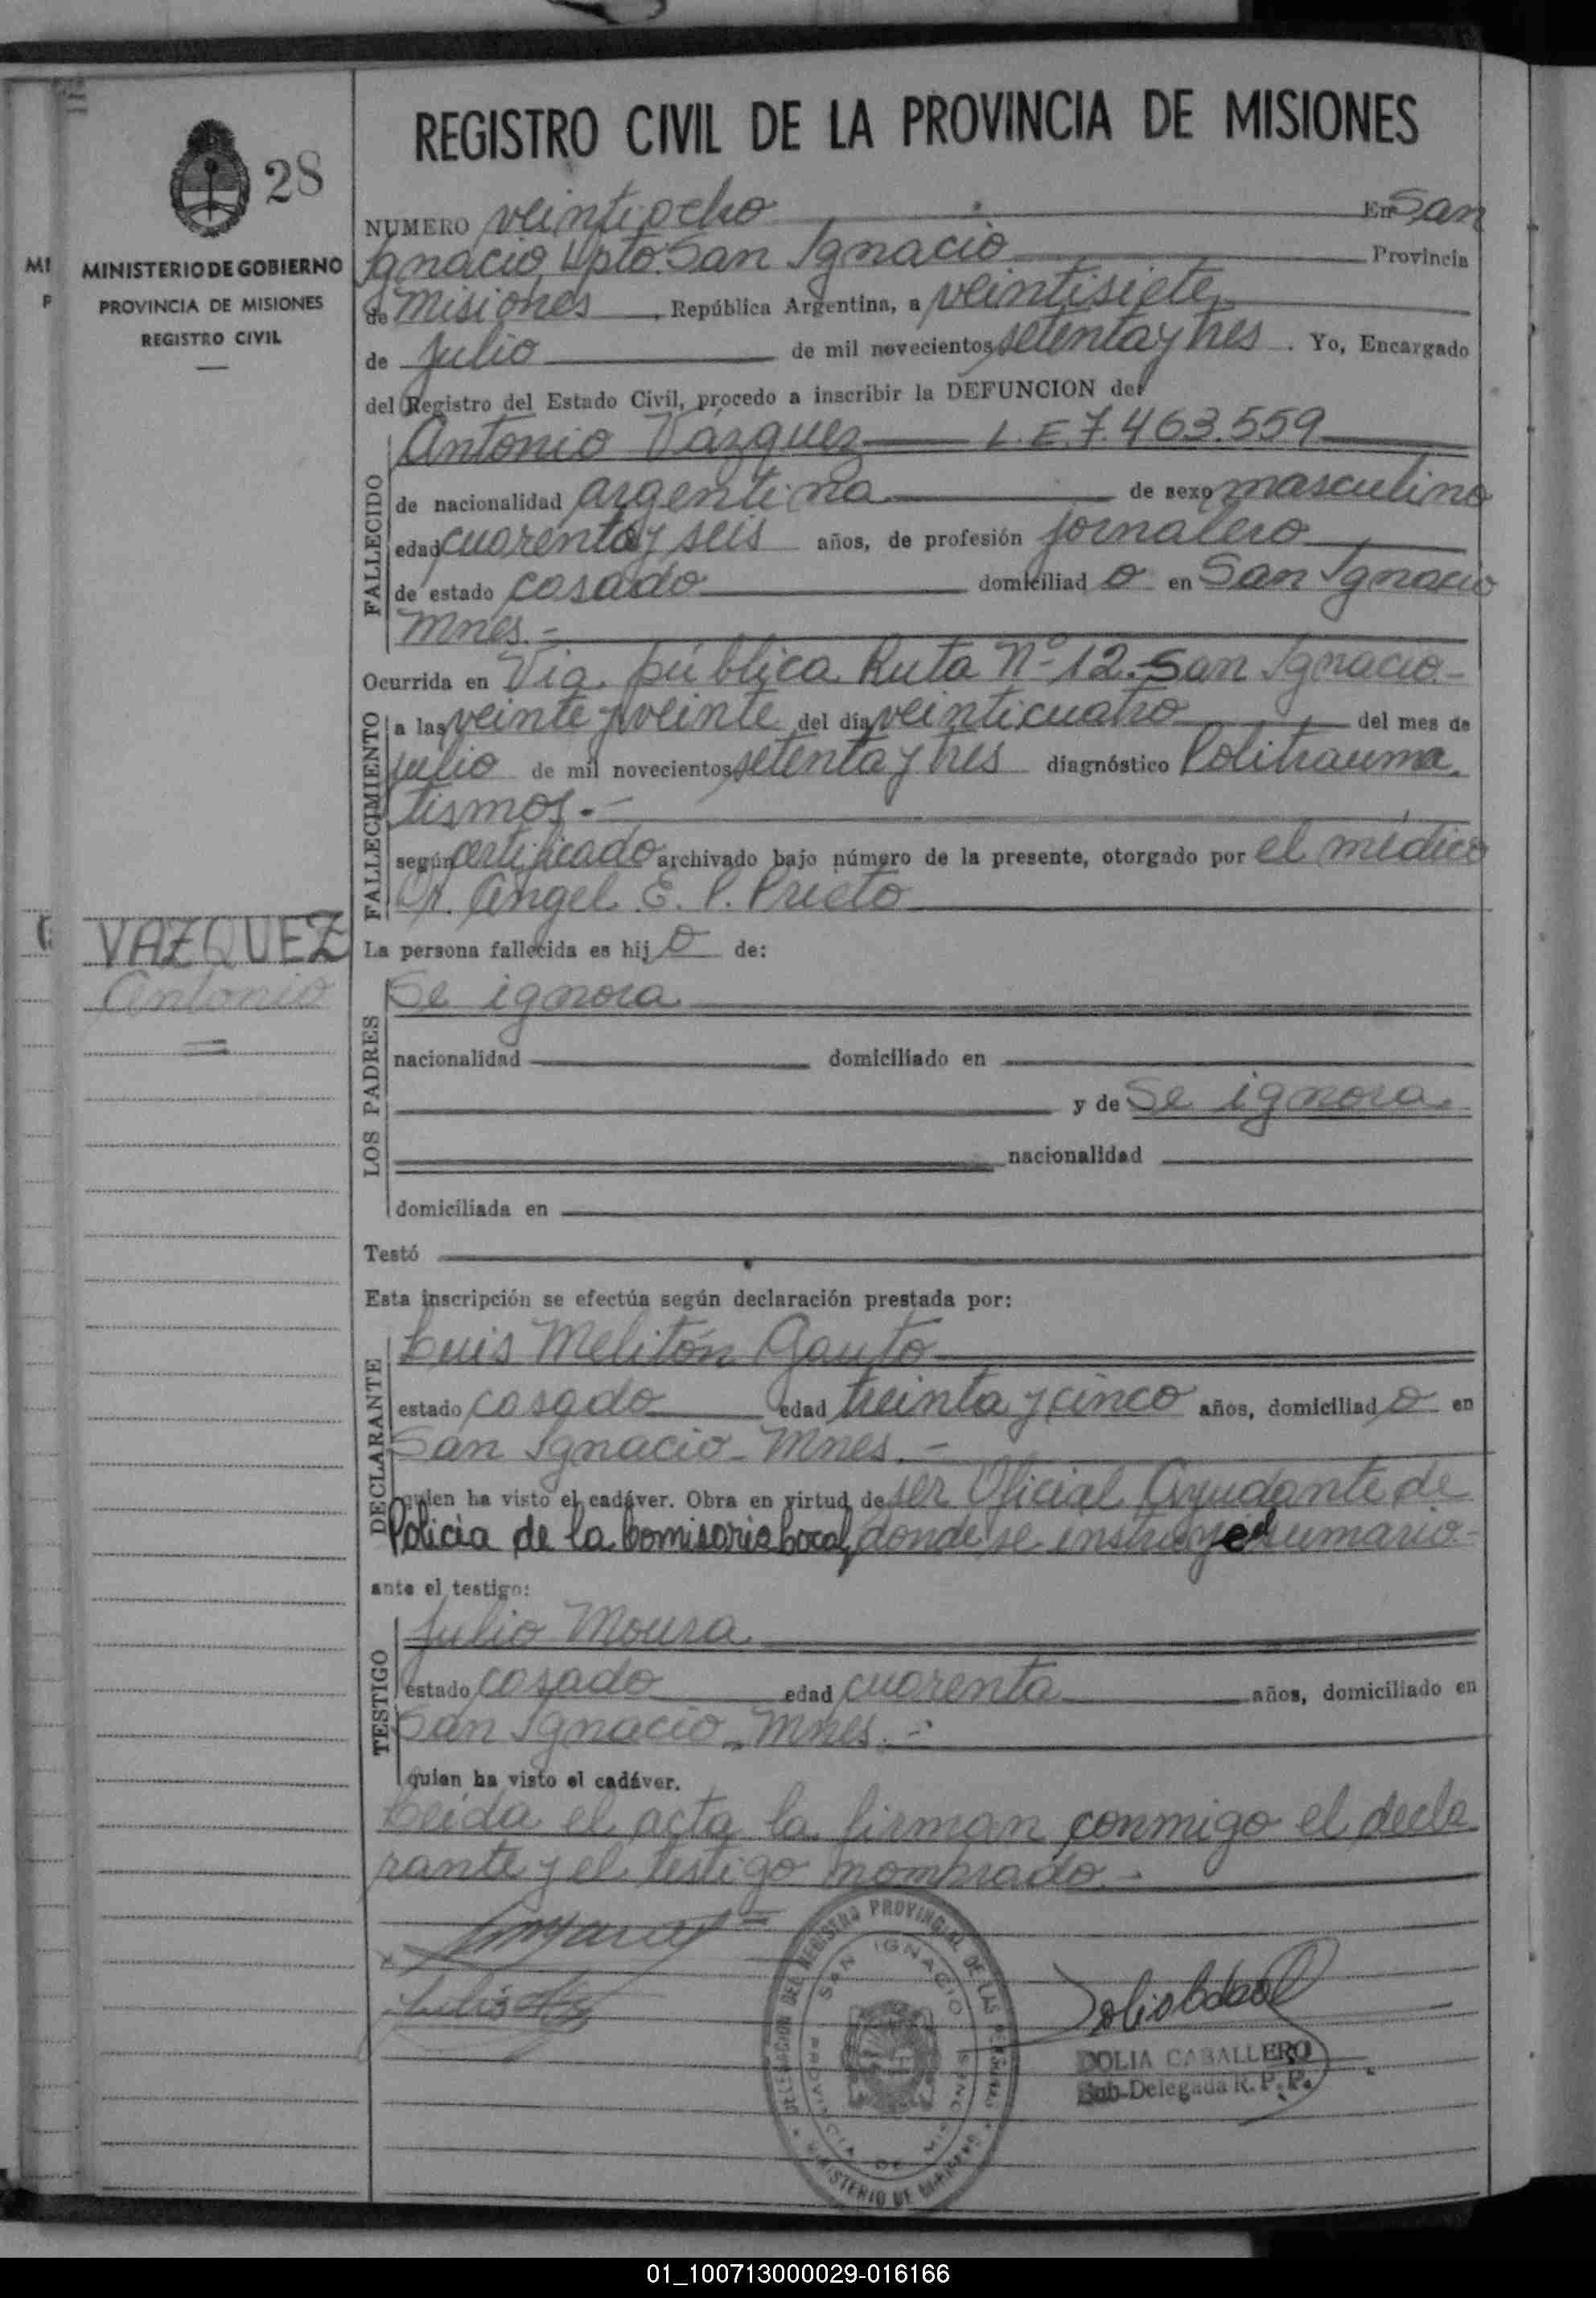 REGISTRO CIVIL DE LA PROVINCIA DE MISIONES
28
MINISTERIO DE GOBIERNO
PROVINCIA DE MISIONES
REGISTRO CIVIL
MI
P
NUMERO veintiocho En San
Ignacio Dpto. San Ignacio Provincia
de Misiones, República Argentina, a veintisiete
de Julio de mil novecientos setenta y tres. Yo, Encargado
del Registro del Estado Civil, procedo a inscribir la DEFUNCION de:
FALLECIDO
Antonio Vázquez L.E. 7.463.559
de nacionalidad argentina de sexo masculino
edad cuarenta y seis años, de profesión jornalero
de estado casado domiciliad o en San Ignacio
Mnes.-
Ocurrida en Vía pública Ruta Nº 12.-San Ignacio-
FALLECIMIENTO
a las veinte y veinte del día veinticuatro del mes de
julio de mil novecientos setenta y tres diagnóstico Politrauma
tismos.-
según certificado archivado bajo número de la presente, otorgado por el médico
Dr. Angel E. P. Prieto
VAZQUEZ
Antonio
La persona fallecida es hij o de:
LOS PADRES
Se ignora
nacionalidad domiciliado en
y de Se ignora
nacionalidad
domiciliada en
Testó
Esta inscripción se efectúa según declaración prestada por:
DECLARANTE
Luis Melitón Gauto
estado casado edad treinta y cinco años, domiciliad o en
San Ignacio - Mnes.-
quien ha visto el cadáver. Obra en virtud de ser Oficial Ayudante de
Policía de la Comisaria Local, donde se instruye el sumario-
ante el testigo:
TESTIGO
Julio Moura
estado casado edad cuarenta años, domiciliado en
San Ignacio - Mnes.-
quien ha visto el cadáver.
Leída el acta la firman conmigo el decla
rante y el testigo nombrado.-
DELEGACION DEL REGISTRO PROVINCIAL DE LAS PERSONAS
SAN IGNACIO
PROVINCIA DE MISIONES
MINISTERIO DE GOBIERNO
DOLIA CABALLERO
Sub-Delegada R. P. P.
01_100713000029-016166